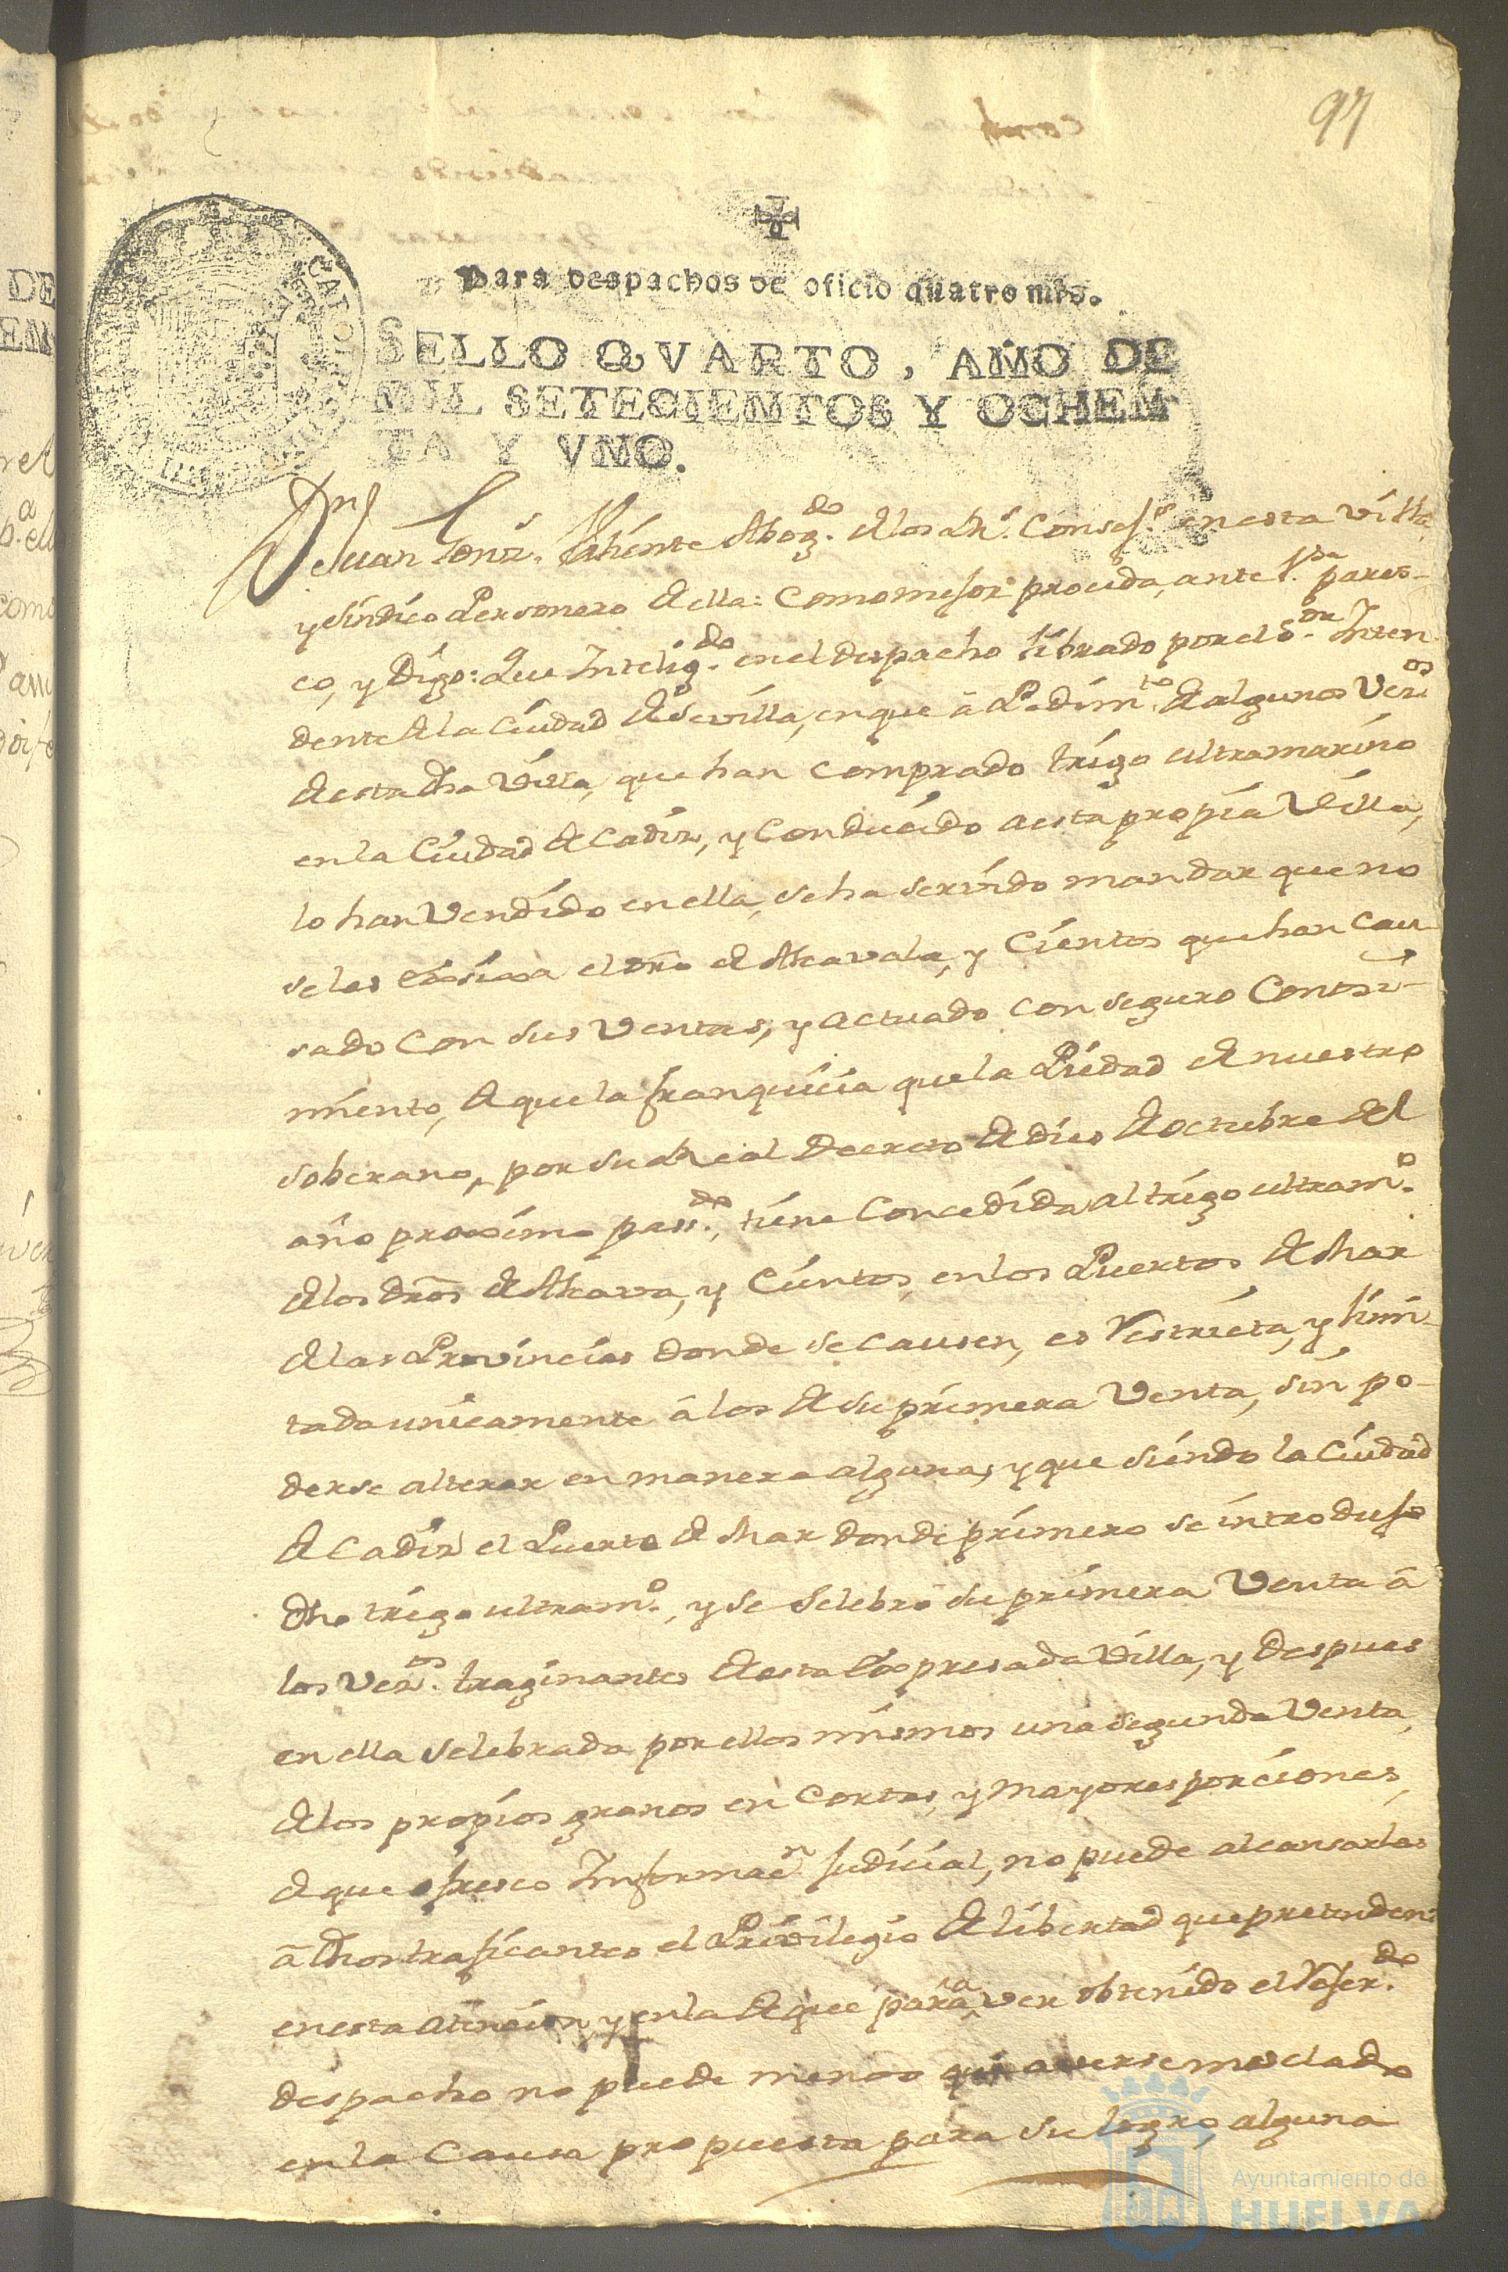 97
Para despachos de oficio quatro mrs.
SELLO QVARTO, AÑO DE
MIL SETECIENTOS Y OCHEN
TA Y VNO.
Dn Juan Gonz.s Abog.do de los R.s Consej.s en esta villa
y sindico Personero de ella: como mejor proceda, ante V. pares-
co, y Digo: Que Intelig.do en el despacho librado por el S.or Inten
dente de la Ciudad de Sevilla, en que â Pedim.to de algunos Vez.os
de esta dha Villa, que han comprado trigo ultramarino
en la Ciudad de Cadiz, y conducido a esta propia Villa,
lo han Vendido en ella, se ha servido mandar que no
se les exsixa el dro de Alcavala, y Cientos que han cau
sado con sus Ventas, y actuado con seguro Conosi-
miento, de que la franquicia que la Piedad de nuestro
soberano, por su Real Decreto de dies de octubre del
año proximo pass.do, tiene Concedida al trigo ultram.o
de los dros de Alcava, y Cientos, en los Puertos de Mar
de las Provincias donde se causen, es Restricta, y limi-
tada unicamente â los de su primera Venta, sin po-
derse alterar en manera alguna, y que siendo la Ciudad
de Cadiz el Puerto de Mar donde primero se introdujo
dho trigo ultram.o, y se selebrò su primera Venta â
los Vez.os traginantes de esta Expresada Villa, y despues
en ella selebrada por ellos mismos una segunda Venta,
de los propios granos en Cortas, y mayores porciones,
de que ofresco Informac.n Judicial, no puede alcansarles
â dhos traficantes el Privilegio de libertad que pretenden:
en esta atencion, y en la de que para aver obtenido el Refer.do
despacho no puede menos que averse mesclado
en la Causa propuesta para su logro, alguna
Ayuntamiento de
HUELVA